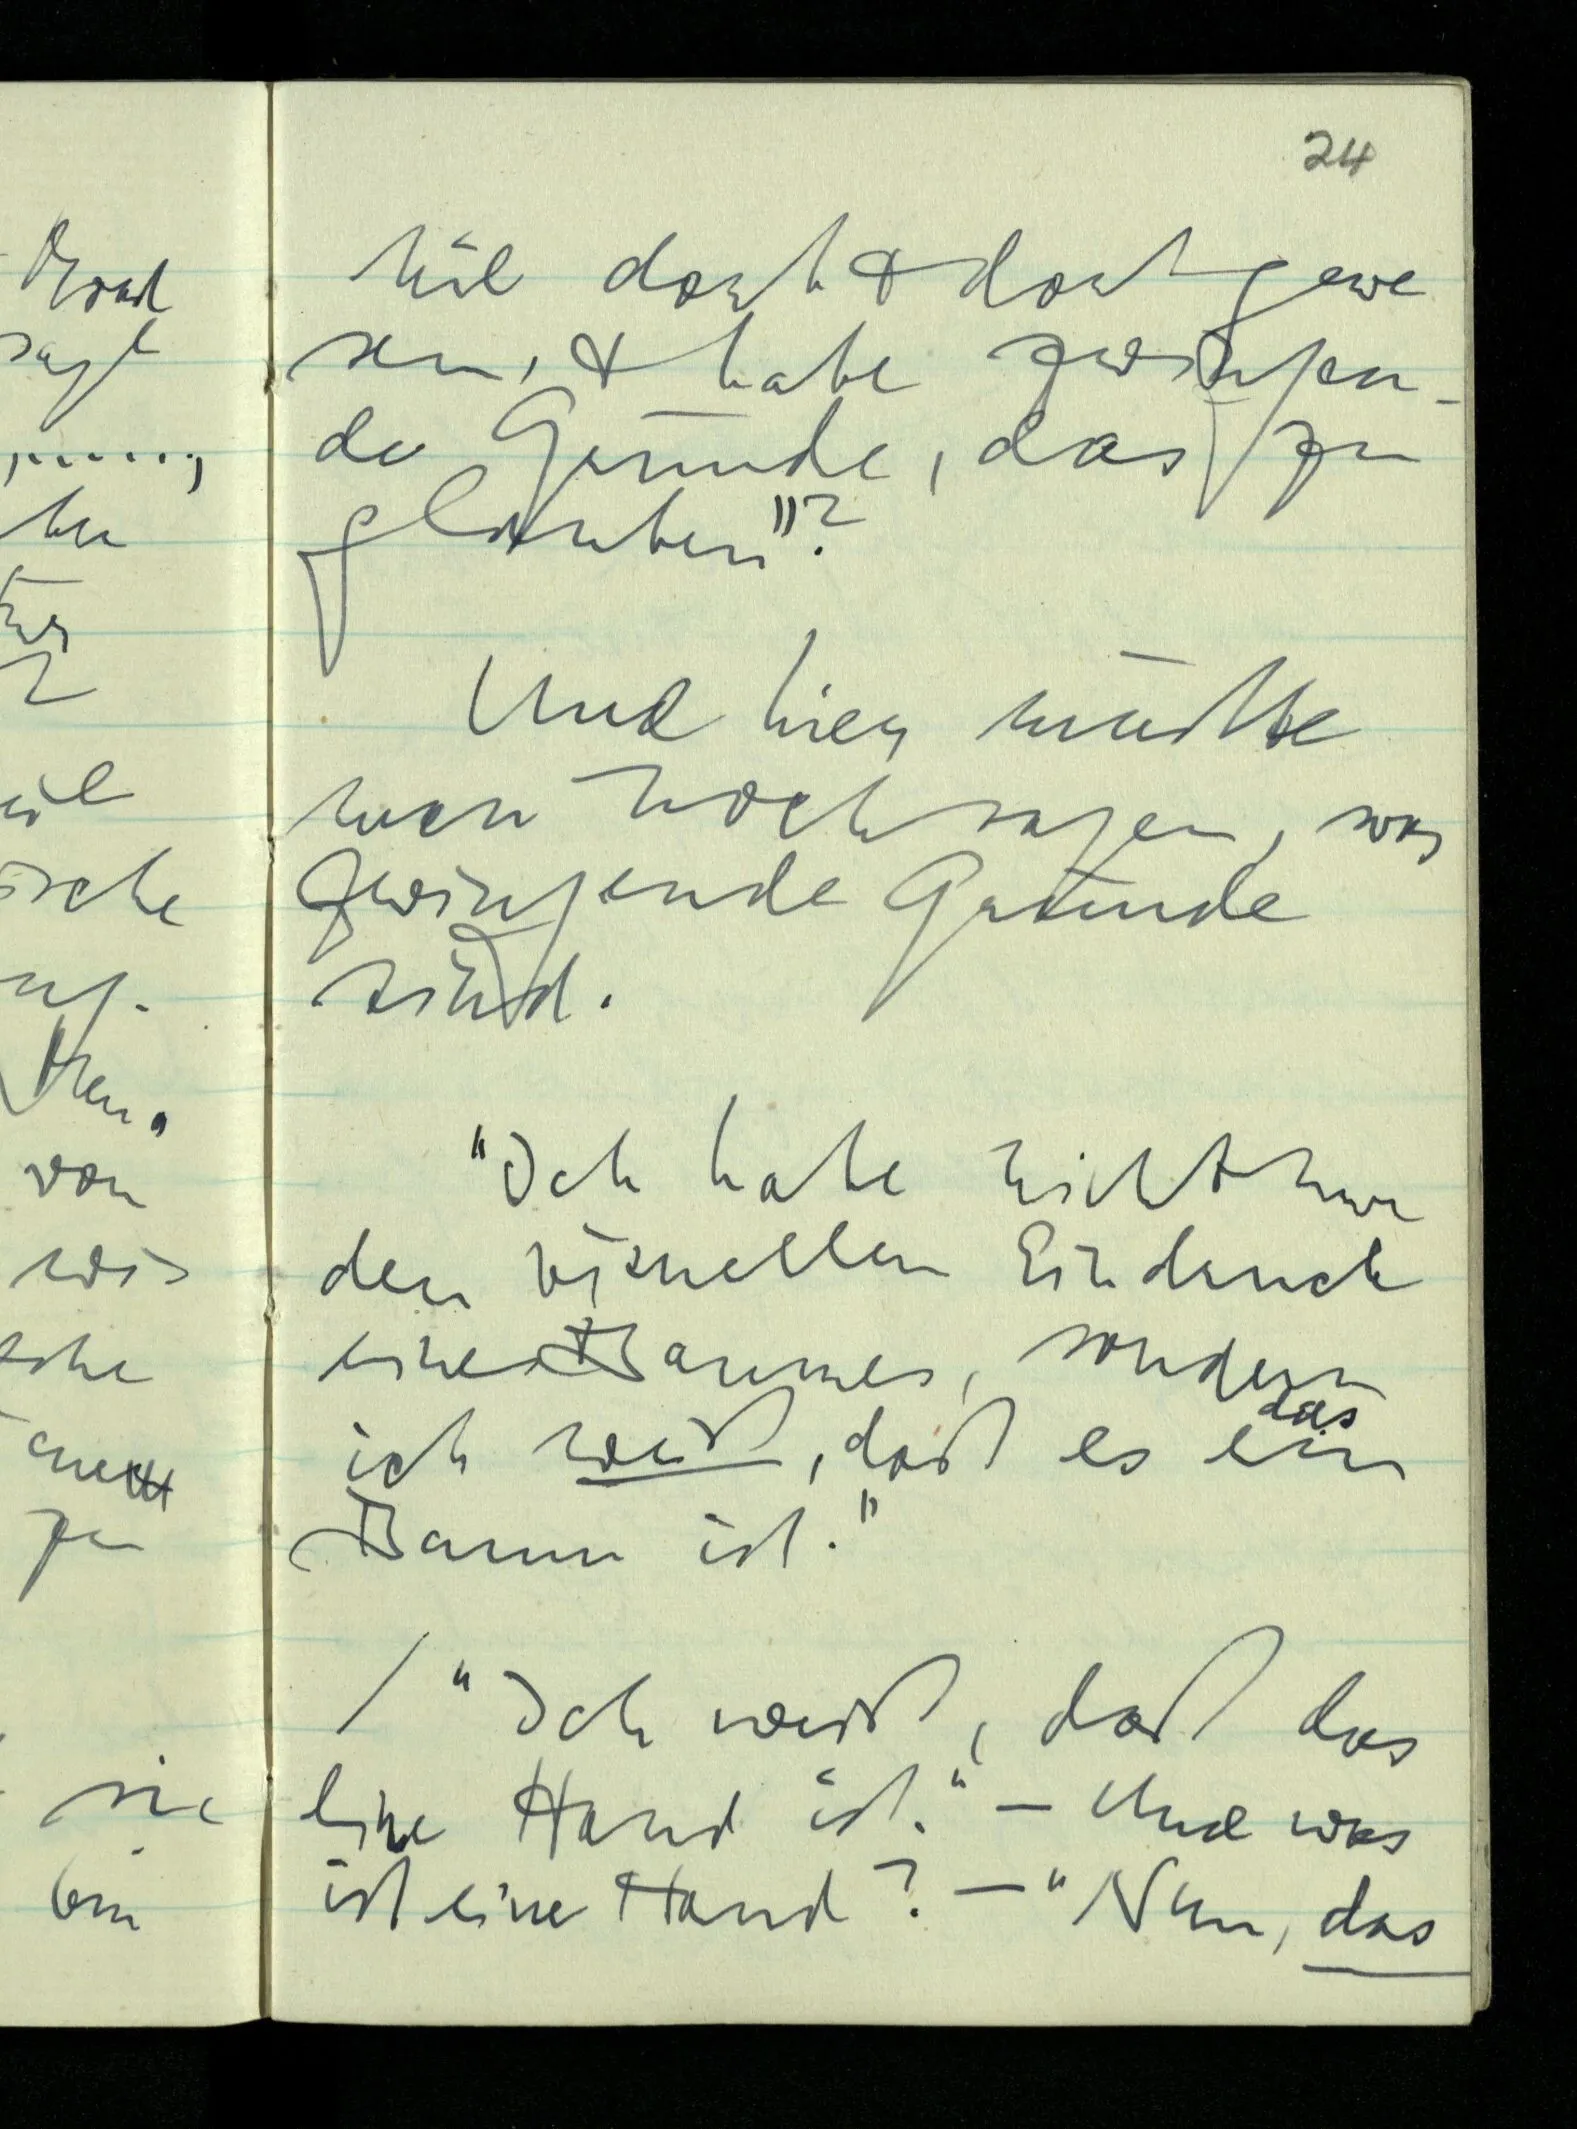 Mond
sagt
von
wir
zu
sie
bin
24
nie dort & dort gewe
sen, & habe zwingen-
de Gründe, das zu
glauben"?
Und hier müßte
man noch sagen, was
zwingende Gründe
sind.
"Ich habe nicht nur
den visuellen Eindruck
eines Baumes, sondern
das
ich weiß, daß es ein
Baum ist."
/ "Ich weiß, daß das
eine Hand ist." — Und was
ist eine Hand? — "Nun, das